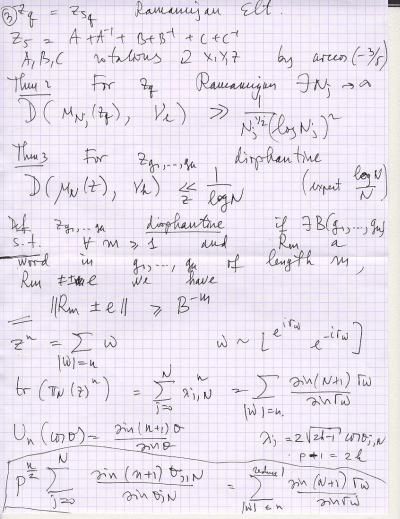 ③ Z_q = Z_{5q} Ramanujan Elt.
Z_5 = A + A^{-1} + B + B^{-1} + C + C^{-1}
A, B, C rotations X, Y, Z by arccos(-3/5)
Thm 2 For Z_q Ramanujan ∃ N_j → ∞
D(μ_{N_j}(Z_q), ν_k) ≫ 1/(N_j^{1/2} (log N_j)^2)
Thm 3 For Z_{g_1,...,g_k} diophantine
D(μ_N(Z), ν_k) ≪_Z 1/log N (expect log N/N)
Def Z_{g_1,...,g_k} diophantine if ∃ B(g_1,...,g_k)
s.t. ∀ m ≥ 1 and R_m a
word in g_1,...,g_k of length m,
R_m ≠ ±e we have
||R_m ± e|| ≥ B^{-m}
Z^n = Σ_{|w|=n} w w ~ [e^{iπw} e^{-iπw}]
tr(π_N(Z)^n) = Σ_{j=0}^{N} λ_{j,N}^n = Σ_{|w|=n} sin(N+1)πw / sin πw
U_n(cos θ) = sin(n+1)θ / sin θ λ_j = 2√(2k-1) cos θ_{j,N}
p+1 = 2k
p^{n/2} Σ_{j=0}^{N} sin(n+1)θ_{j,N} / sin θ_{j,N} = Σ^{reduced}_{|w|≤n} sin(N+1)πw / sin πw